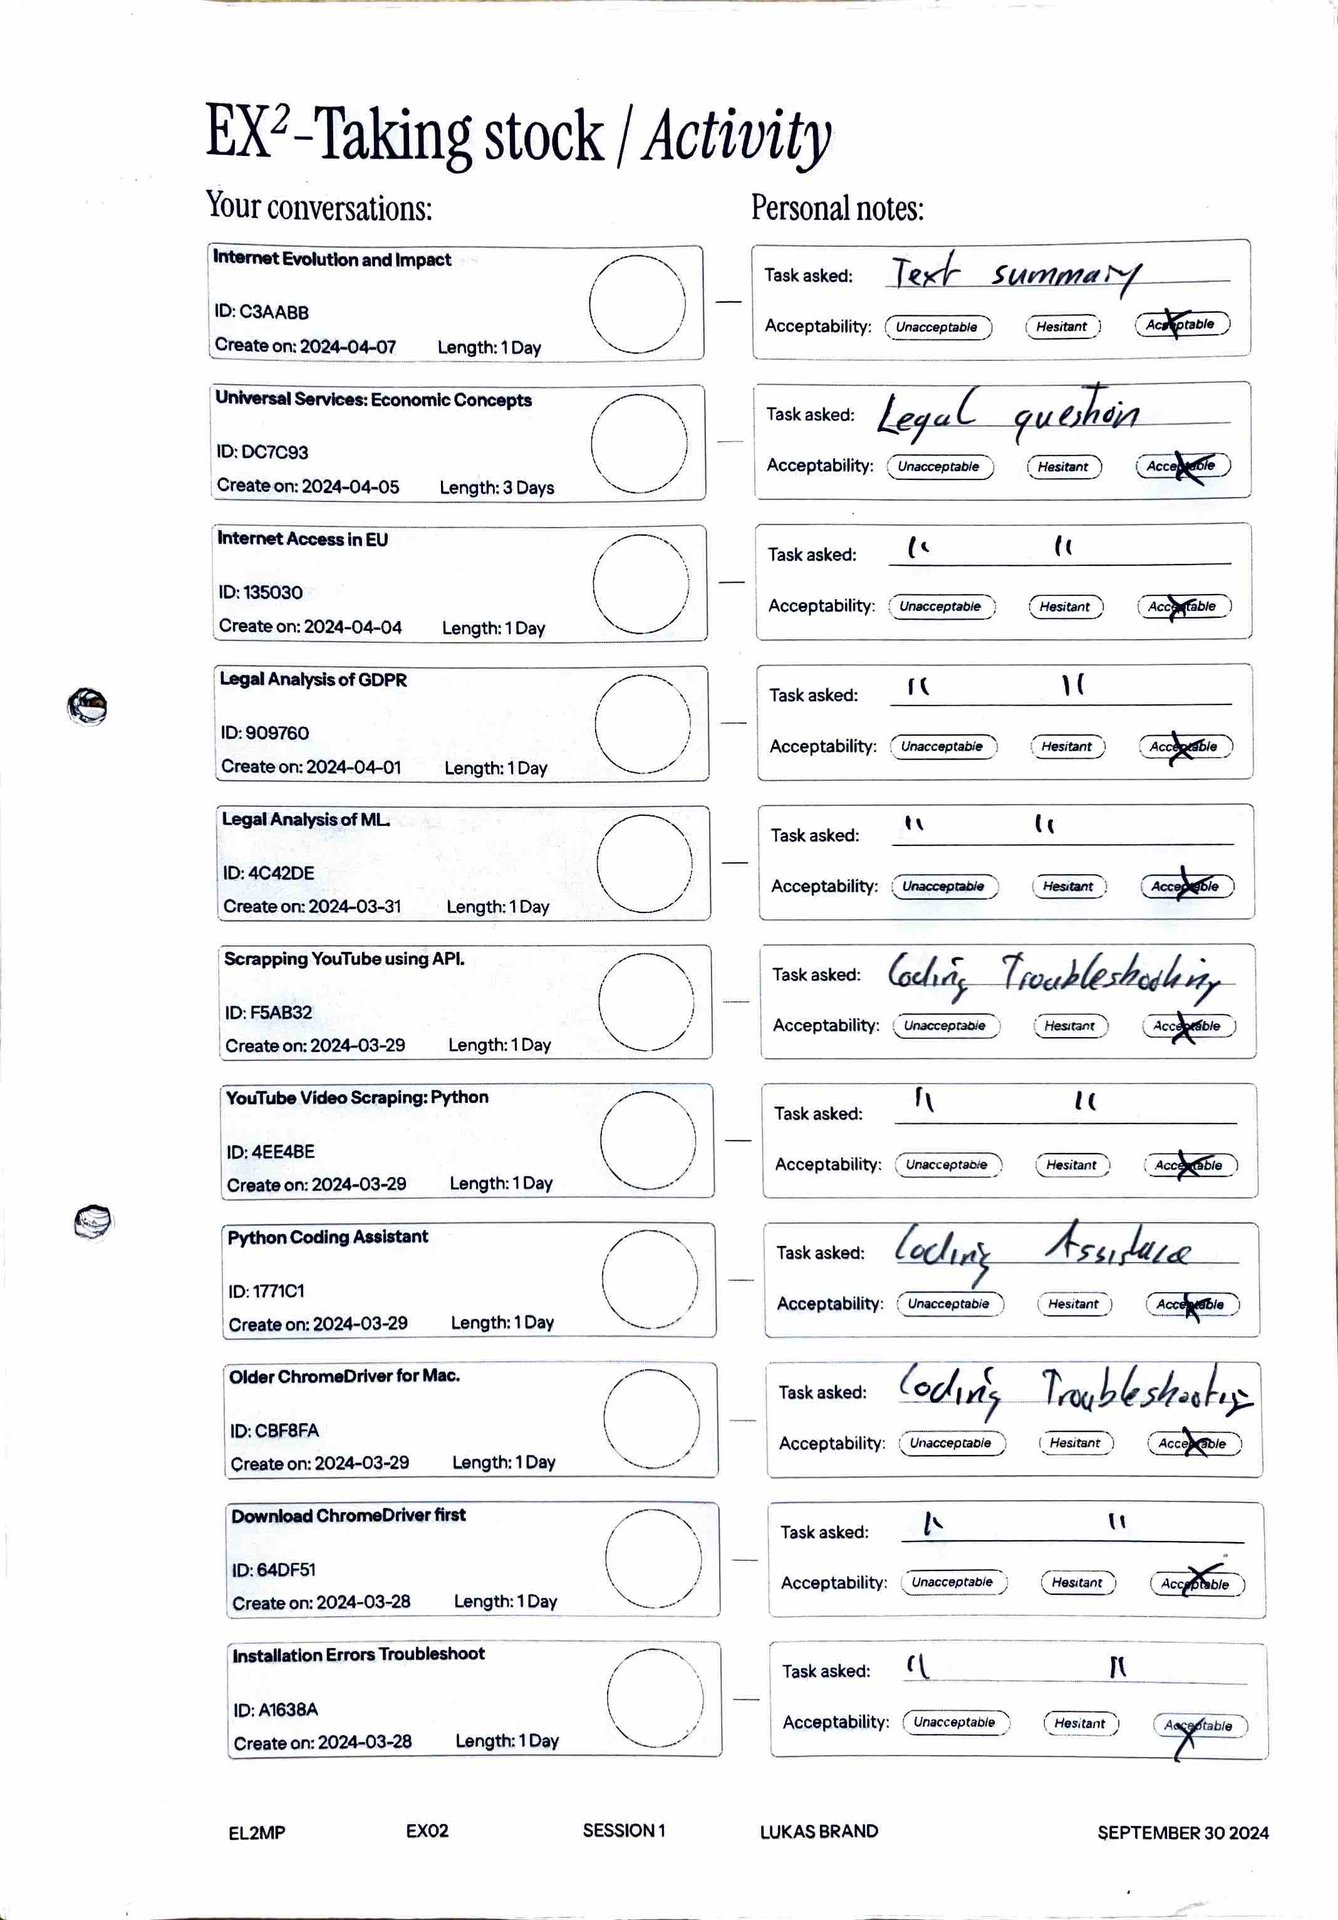 EX²-Taking stock / Activity
Your conversations:
Personal notes:
Internet Evolution and Impact
ID: C3AABB
Create on: 2024-04-07 Length: 1 Day
Task asked: Text summary
Acceptability: Unacceptable Hesitant Acceptable
Universal Services: Economic Concepts
ID: DC7C93
Create on: 2024-04-05 Length: 3 Days
Task asked: Legal question
Acceptability: Unacceptable Hesitant Acceptable
Internet Access in EU
ID: 135030
Create on: 2024-04-04 Length: 1 Day
Task asked: " "
Acceptability: Unacceptable Hesitant Acceptable
Legal Analysis of GDPR
ID: 909760
Create on: 2024-04-01 Length: 1 Day
Task asked: " "
Acceptability: Unacceptable Hesitant Acceptable
Legal Analysis of ML.
ID: 4C42DE
Create on: 2024-03-31 Length: 1 Day
Task asked: " "
Acceptability: Unacceptable Hesitant Acceptable
Scrapping YouTube using API.
ID: F5AB32
Create on: 2024-03-29 Length: 1 Day
Task asked: Coding Troubleshooting
Acceptability: Unacceptable Hesitant Acceptable
YouTube Video Scraping: Python
ID: 4EE4BE
Create on: 2024-03-29 Length: 1 Day
Task asked: " "
Acceptability: Unacceptable Hesitant Acceptable
Python Coding Assistant
ID: 1771C1
Create on: 2024-03-29 Length: 1 Day
Task asked: Coding Assistace
Acceptability: Unacceptable Hesitant Acceptable
Older ChromeDriver for Mac.
ID: CBF8FA
Create on: 2024-03-29 Length: 1 Day
Task asked: Coding Troubleshooting
Acceptability: Unacceptable Hesitant Acceptable
Download ChromeDriver first
ID: 64DF51
Create on: 2024-03-28 Length: 1 Day
Task asked: " "
Acceptability: Unacceptable Hesitant Acceptable
Installation Errors Troubleshoot
ID: A1638A
Create on: 2024-03-28 Length: 1 Day
Task asked: " "
Acceptability: Unacceptable Hesitant Acceptable
EL2MP EX02 SESSION 1 LUKAS BRAND SEPTEMBER 30 2024